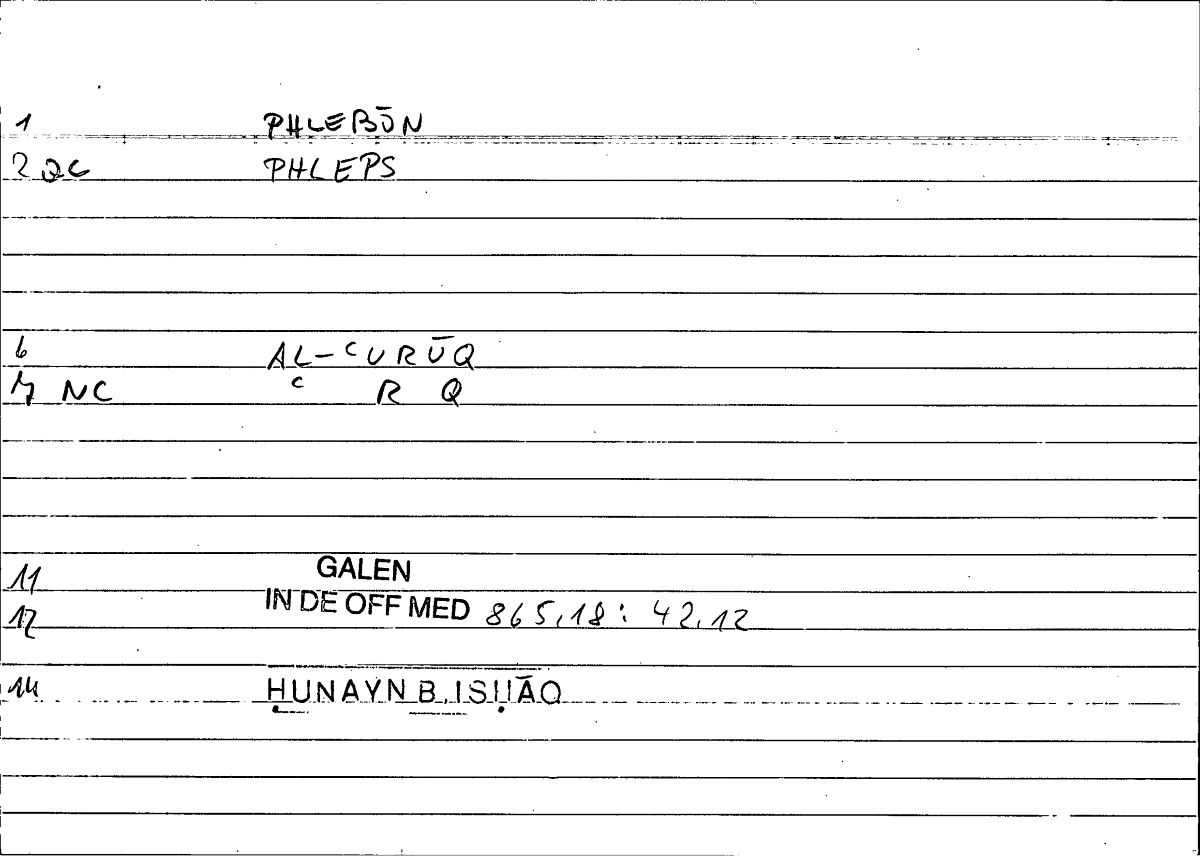 1 PHLEBŌN
2 QC PHLEPS
6 AL-ᶜURŪQ
7 NC ᶜ R Q
11 GALEN
12 IN DE OFF MED 865,18 : 42,12
14 ḤUNAYN B. ISḤĀQ